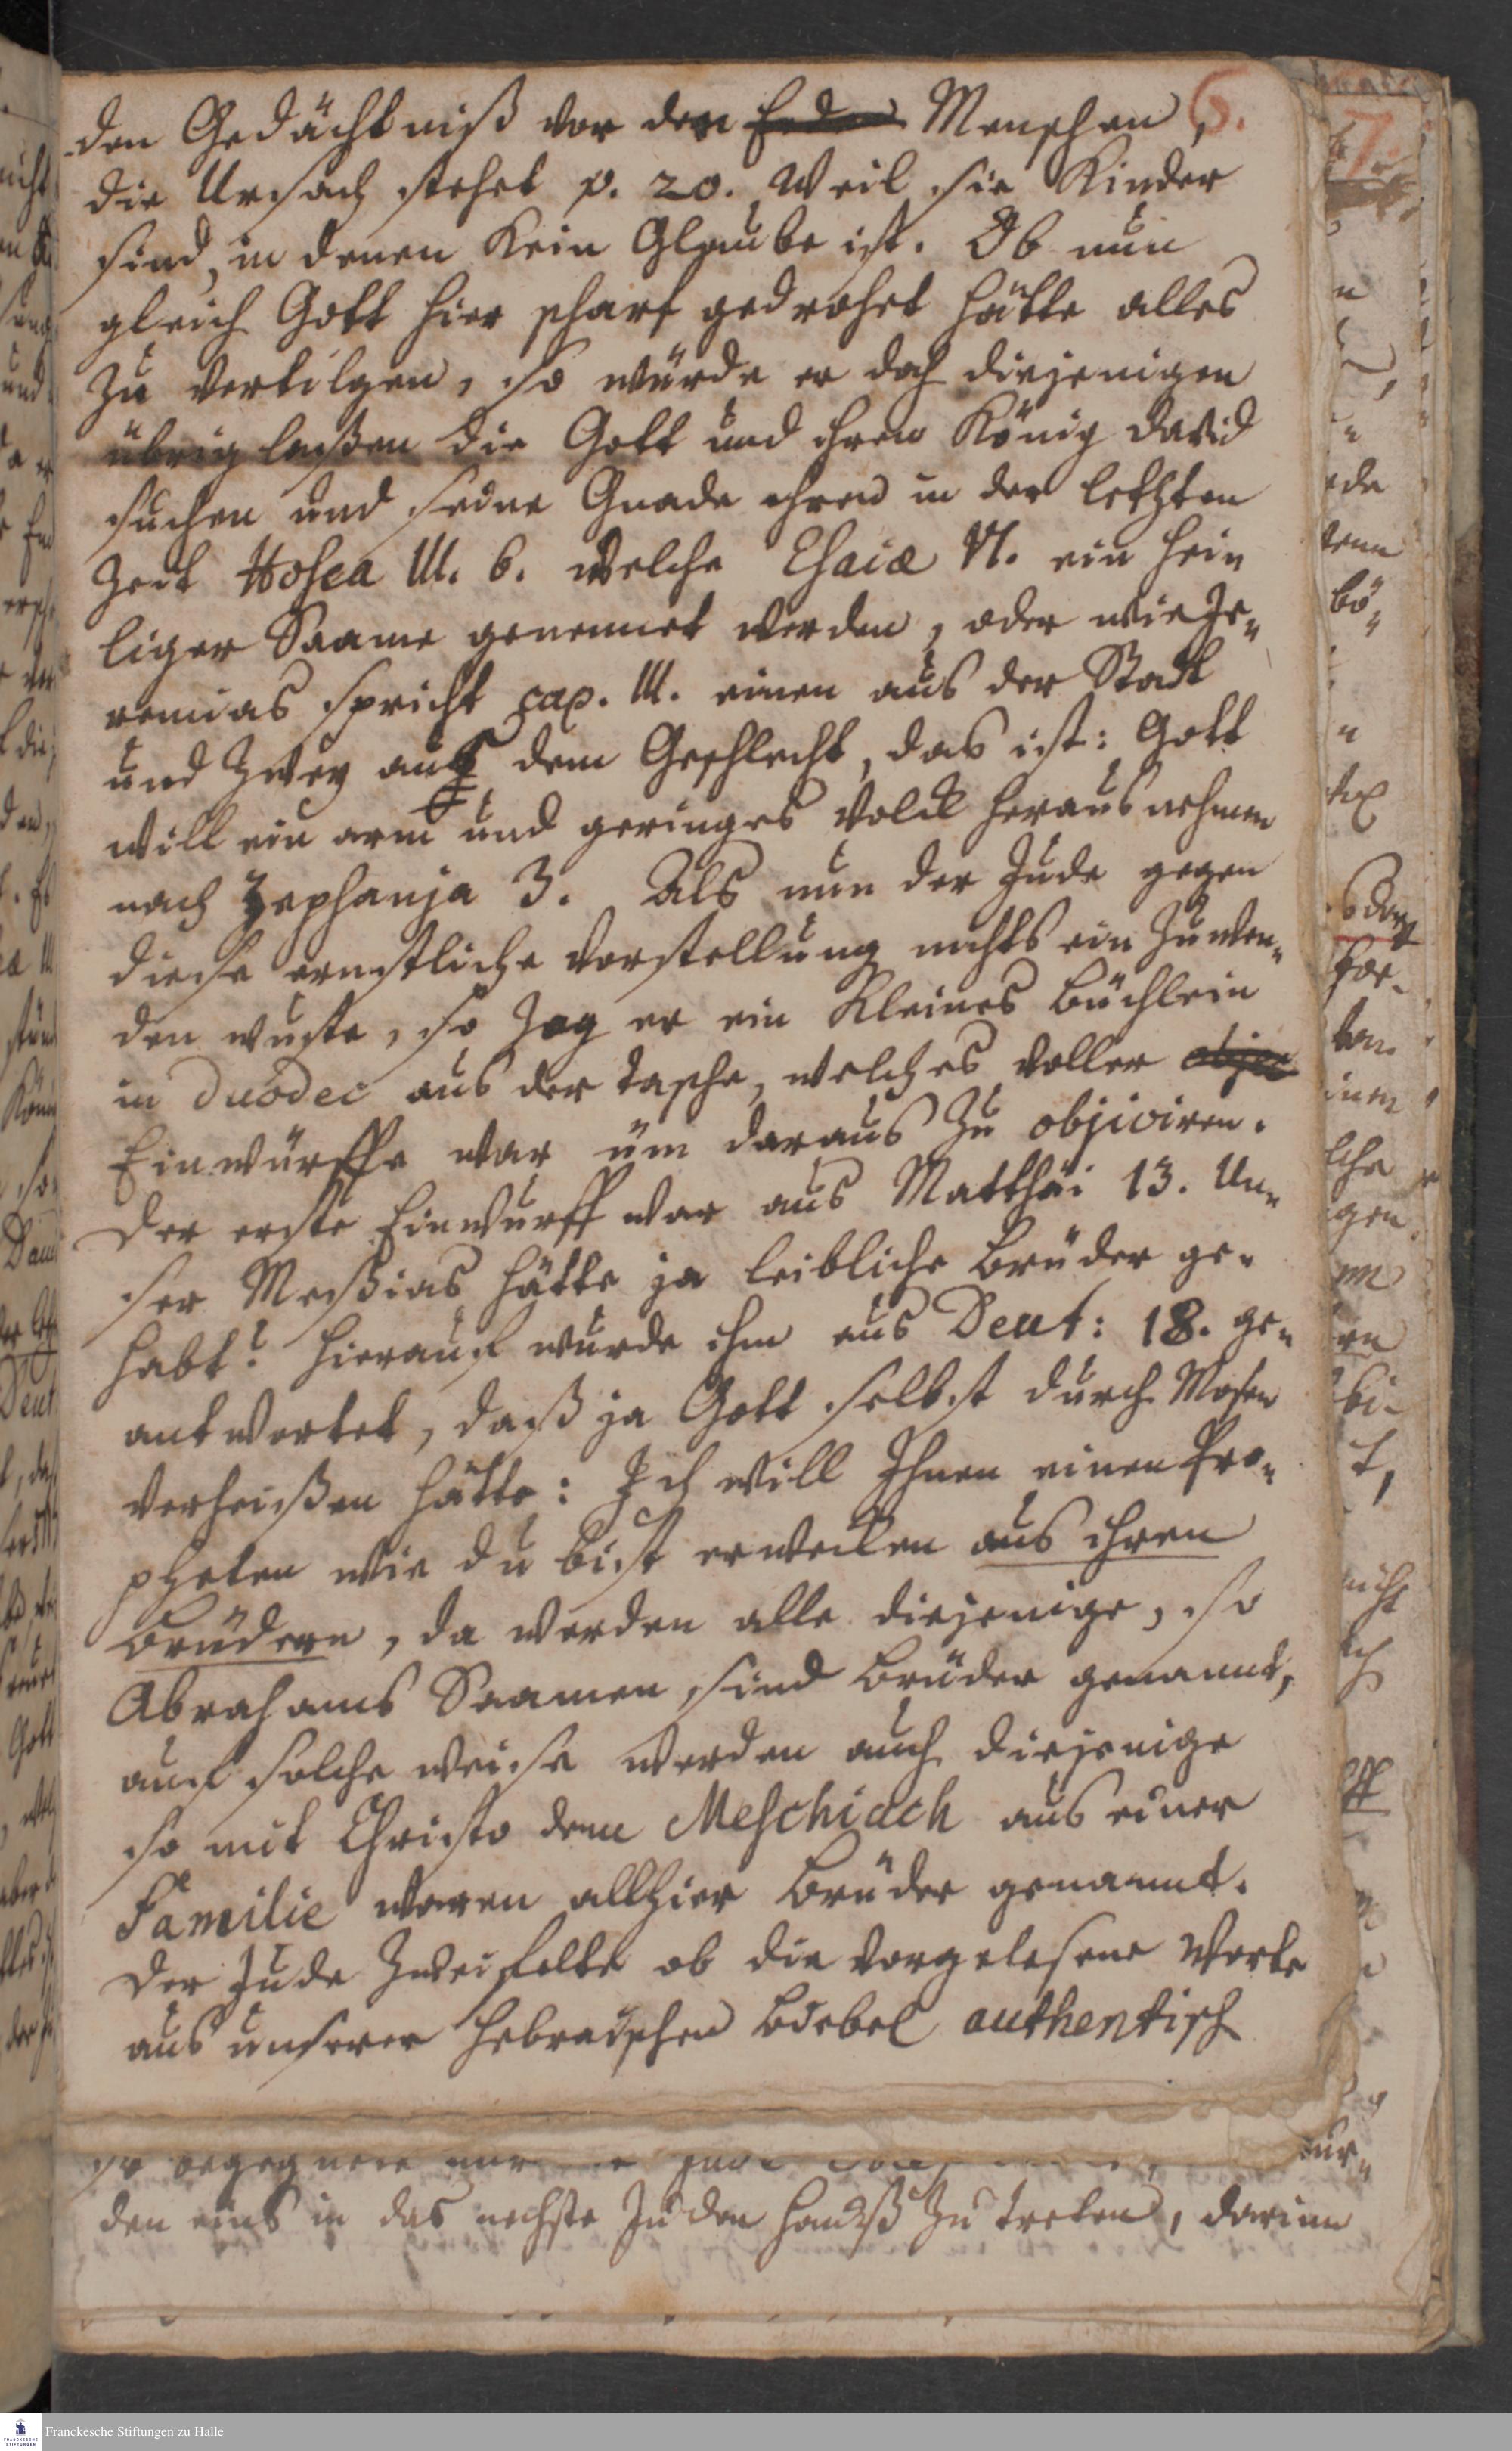 6.
den Gedächtniß vor den Erden Menschen,
die Ursach stehet v. 20. Weil sie Kinder
sind, in denen kein Glaube ist. Ob nun
gleich Gott hier scharf gedrohet hätte alles
zu vertilgen, so würde er doch diejenigen
übrig laßen die Gott und ihren König David
suchen und seine Gnade ehren in der letzten
Zeit Hosea III. 6. welche Esaiæ VI. ein hei„
liger Saame genennet werden, oder wie Je„
remias spricht cap. III. einen aus der Stadt
und zwey aus dem Geschlecht, das ist: Gott
will ein arm und geringes Volck heraus nehmen
nach Zephanja 3. Als nun der Jude gegen
diese ernstliche Vorstellung nichts ein zu wen„
den wuste, so zog er ein kleines Büchlein
in duodec aus der Tasche, welches voller objec
Einwürffe war üm daraus zu objiciren.
Der erste Einwurff war aus Matthäi 13. Un„
ser Meßias hätte ja leibliche Brüder ge„
habt? hierauf wurde ihm aus Deut: 18. ge„
antwortet, daß ja Gott selbst durch Mosen
verheißen hätte: Ich will Ihnen einen Pro„
pheten wie du bist erwecken aus ihren
Brüdern, da werden alle diejenige, so
Abrahams Saamen sind Brüder genannt,
auf solche weise werden auch diejenige
so mit Christo dem Meschiach aus einer
Familie waren allhier Brüder genannt.
Der Jude zweifelte ob die vorgelesene Worte
aus unserer hebraischen Biebel authentisch
so begegnete
den uns in das nechste Juden Hauß zu treten, darinn
7.
Franckesche Stiftungen zu Halle